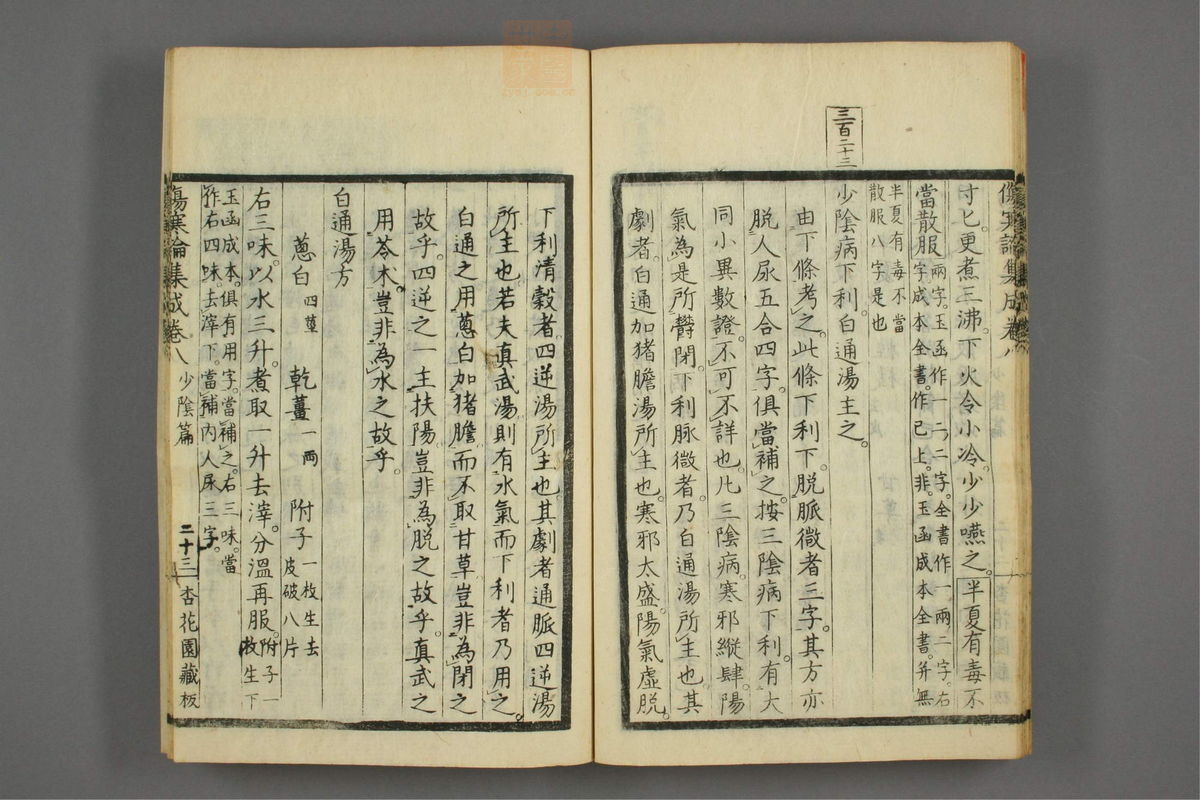 三百二十三
寸匕更煮三沸下火令小冷少少嚥之半夏有毒不
當散服兩字玉函作一二字全書作一兩二字右
字成本全書作已上非玉函成本全書并無
半夏有毒不當
散服八字是也
少陰病下利白通湯主之
由下條考之此條下利下脫脈微者三字其方亦
脫人尿五合四字俱當補之按三陰病下利有大
同小異數證不可不詳也凡三陰病寒邪縱肆陽
氣為是所鬱閉下利脈微者乃白通湯所主也其
劇者白通加猪膽湯所主也寒邪太盛陽氣虛脫
下利清穀者四逆湯所主也其劇者通脈四逆湯
所主也若夫真武湯則有水氣而下利者乃用之
白通之用蔥白加猪膽而不取甘草豈非為閉之
故乎四逆之一主扶陽豈非為脫之故乎真武之
用苓朮豈非為水之故乎
白通湯方
蔥白四莖 乾薑一兩 附子一枚生去
皮破八片
右三味以水三升煮取一升去滓分溫再服附子一
枚生下
玉函成本俱有用字當補之右三味當
作右四味去滓下當補内人尿三字
傷寒論集成卷八 少陰篇 二十三 杏花園藏板
傷寒論集成卷八